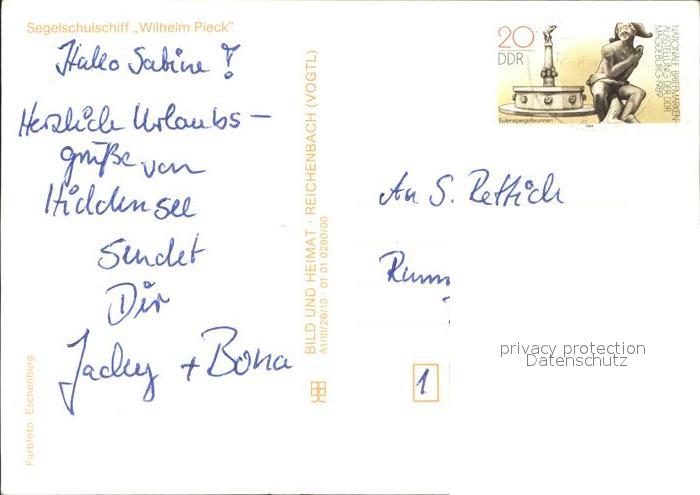 Segelschulschiff „Wilhelm Pieck"
Hallo Sabine!
Herzliche Urlaubs –
grüße von
Hiddensee
Sendet
Dir
Jacky + Bona
Farbfoto · Eschenburg
BILD UND HEIMAT · REICHENBACH (VOGTL)
A1/III/26/13 · 01 01 0290/00
20
DDR
Eulenspiegelbrunnen
NATIONALE BRIEFMARKEN-
AUSSTELLUNG DER DDR
MAGDEBURG 1989
An S. Rettich
1
privacy protection
Datenschutz